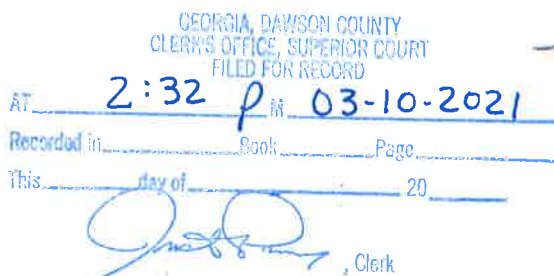 GEORGIA, DAWSON COUNTY
CLERK'S OFFICE, SUPERIOR COURT
FILED FOR RECORD
AT 2:32 P M 03-10-2021
Recorded in Book Page
This day of 20
, Clerk